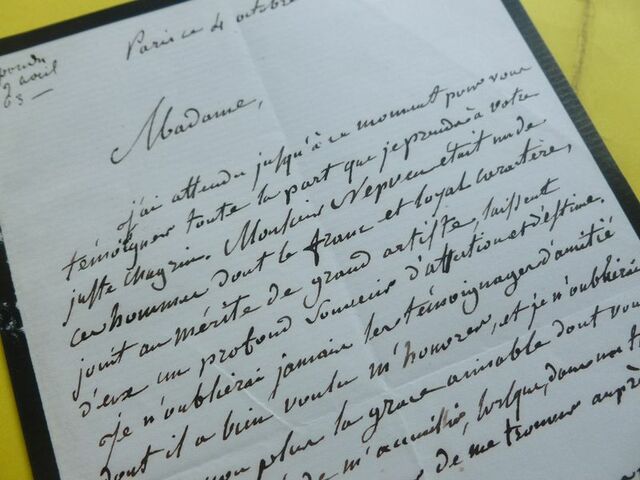 Paris ce 4 octobre
2 avril
63
Madame,
j'ai attendu jusqu'à ce moment pour vous
témoigner toute la part que je prends à votre
juste chagrin. Monsieur Nepveu était un de
ces hommes dont le franc et loyal caractère,
joint au mérite de grand artiste, laissent
d'eux un profond souvenir d'affection et d'estime.
Je n'oublierai jamais les témoignages d'amitié
dont il a bien voulu m'honorer, et je n'oublierai
non plus la grace aimable dont vous
de m'accueillir, lorsque, dans mon
de me trouver auprès